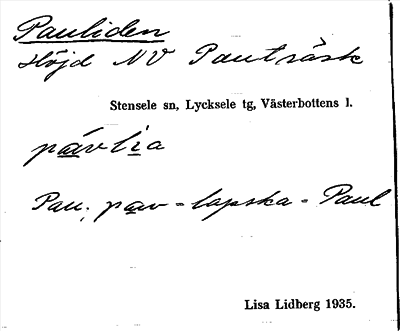 Pauliden
Höjd NV Pauträsk
Stensele sn, Lycksele tg, Västerbottens l.
pávlia
Pau, pav = lapska = Paul
Lisa Lidberg 1935.